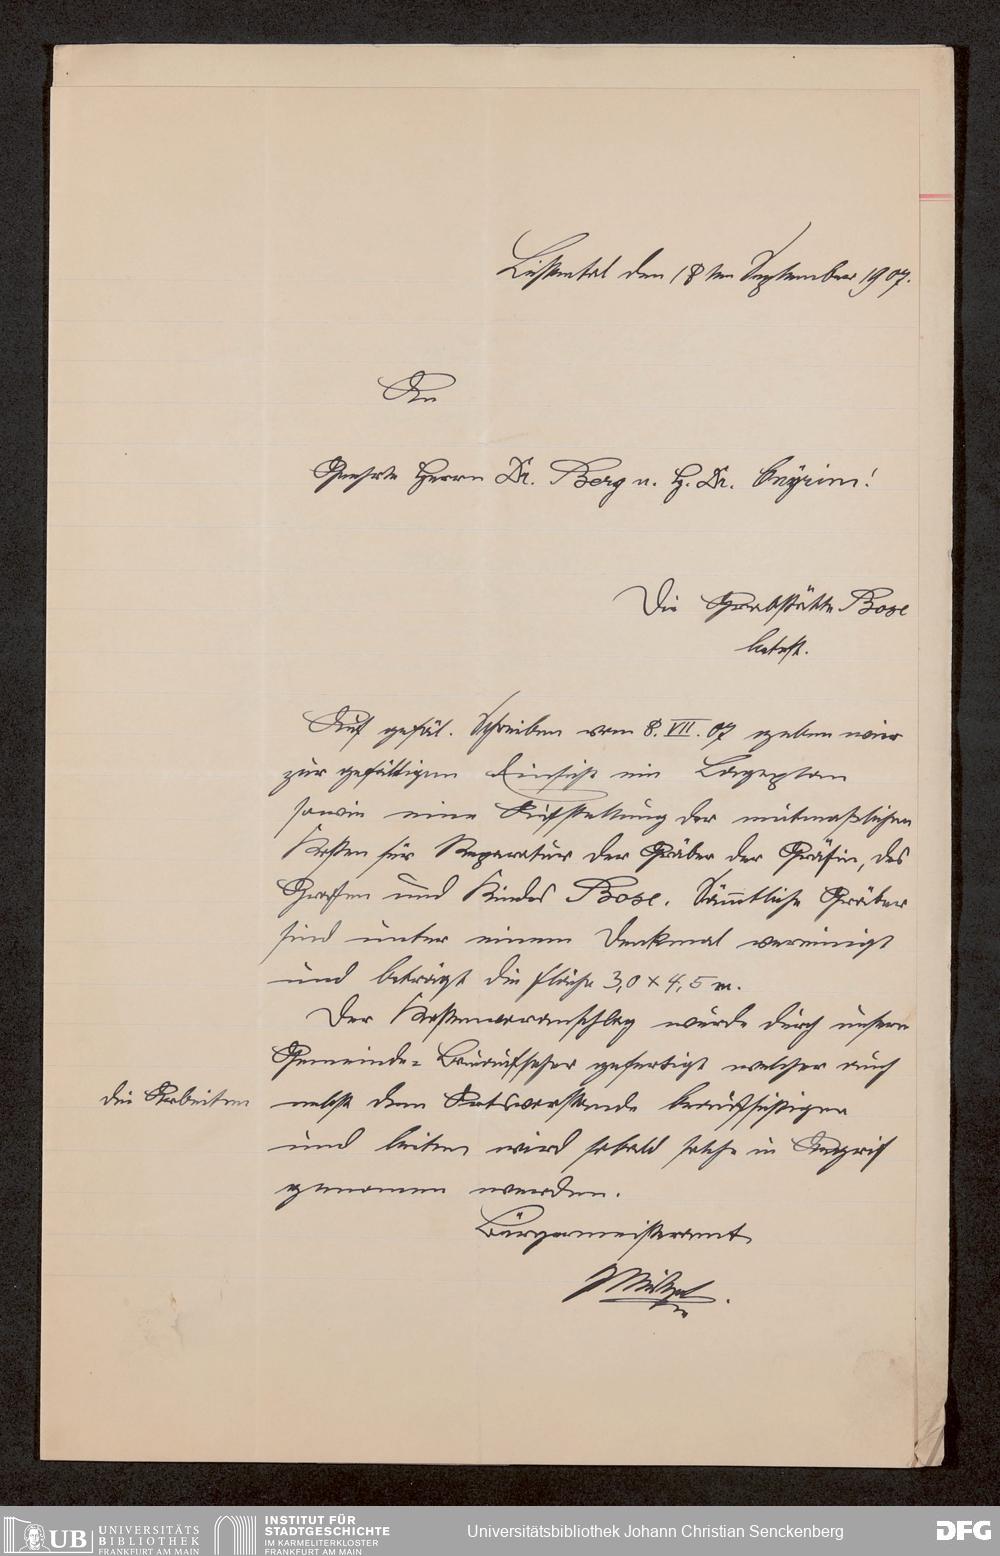 Lichtental den 18ten September 1907.
An
Geehrte Herrn Dr. Berg u. H. Dr.
Die Grabstätte Bose
betest.
Auf gefäl. Schreiben vom 8. VII. 07 geben wir
zur gefälligen Einsicht ein Lageplan
sowie eine Aufstellung der mutmaßlichen
Kosten für Reparatur der Gräber der Gräfin, des
Grafen und Kindes Bose. Sämtliche Gräber
sind unter einem Denkmal vereinigt
und beträgt die Fläche 3,0 x 4,5 m.
Der Kostenvoranschlag wurde durch unsern
Gemeinde= Bauaufseher gefertigt welcher auch
die Arbeiten nebst dem Ortsvorstande beaufsichtigen
und leiten wird sobald solche in Angrif
genommen werden.
Bürgermeisteramt
UB UNIVERSITÄTS
BIBLIOTHEK
FRANKFURT AM MAIN
INSTITUT FÜR
STADTGESCHICHTE
IM KARMELITERKLOSTER
FRANKFURT AM MAIN
Universitätsbibliothek Johann Christian Senckenberg
DFG